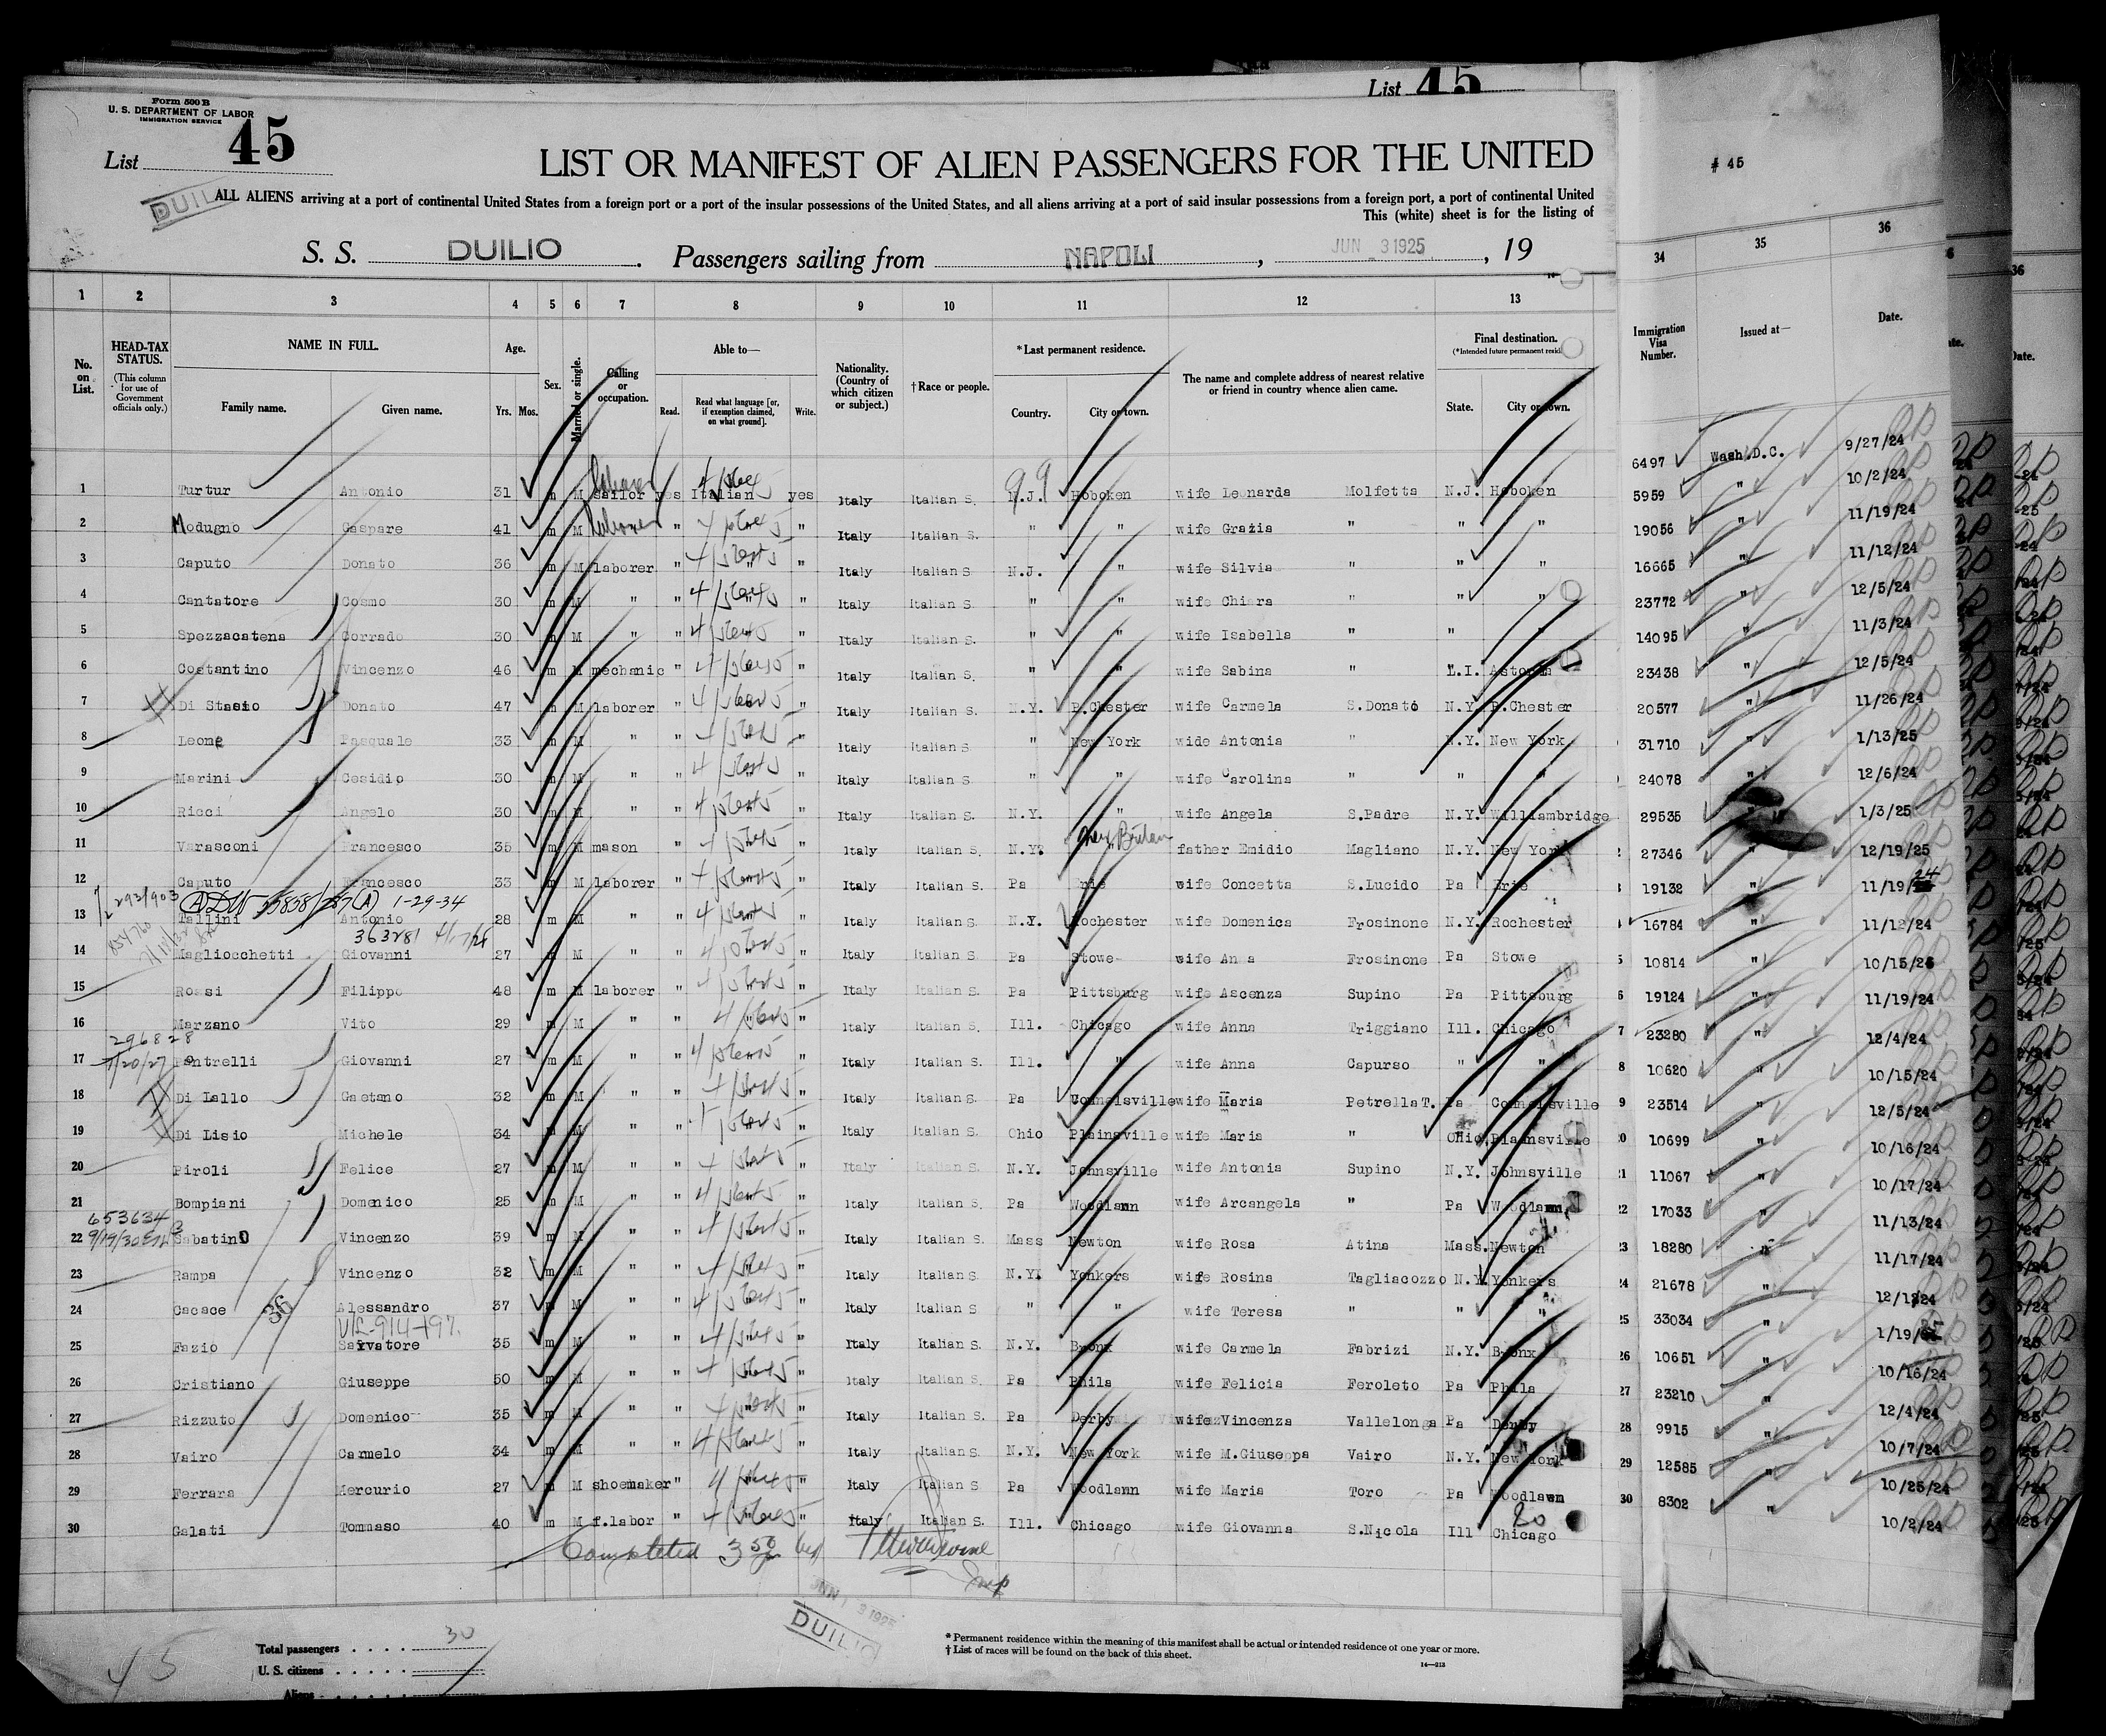 List 45
Form 500 B
U. S. DEPARTMENT OF LABOR
IMMIGRATION SERVICE
List 45
# 45
LIST OR MANIFEST OF ALIEN PASSENGERS FOR THE UNITED
DUILIO
ALL ALIENS arriving at a port of continental United States from a foreign port or a port of the insular possessions of the United States, and all aliens arriving at a port of said insular possessions from a foreign port, a port of continental United
This (white) sheet is for the listing of
S. S. DUILIO. Passengers sailing from NAPOLI, JUN 3 1925, 19
1 2 3 4 5 6 7 8 9 10 11 12 13 34 35 36
No. on List.
HEAD-TAX STATUS.
(This column for use of Government officials only.)
NAME IN FULL.
Family name. Given name.
Age.
Yrs. Mos.
Sex.
Married or single.
Calling or occupation.
Able to—
Read. Read what language [or, if exemption claimed, on what ground]. Write.
Nationality. (Country of which citizen or subject.)
†Race or people.
*Last permanent residence.
Country. City or town.
The name and complete address of nearest relative or friend in country whence alien came.
Final destination.
(*Intended future permanent resid
State. City or town.
Immigration Visa Number.
Issued at—
Date.
1 Turtur Antonio 31 m M sailor laborer yes Italian yes Italy Italian S. N.J. Hoboken wife Leonarda Molfetta N.J. Hoboken 6497 Wash. D.C. 9/27/24
2 Modugno Gaspare 41 m M laborer " " Italy Italian S. " " wife Grazia " " " 5959 " 10/2/24
3 Caputo Donato 36 m M laborer " " Italy Italian S N.J. " wife Silvia " " " 19056 " 11/19/24
4 Cantatore Cosmo 30 m M " " " " Italy Italian S. " " wife Chiara " " " 16665 " 11/12/24
5 Spezzacatena Corrado 30 m M " " " Italy Italian S. " " wife Isabella " " " 23772 " 12/5/24
6 Costantino Vincenzo 46 m M mechanic " " Italy Italian S. " " wife Sabina " L.I. Astoria 14095 " 11/3/24
7 Di Stasio Donato 47 m M laborer " " Italy Italian S. N.Y. P.Chester wife Carmela S.Donato N.Y. P.Chester 23438 " 12/5/24
8 Leone Pasquale 33 m M " " " Italy Italian S. " New York wide Antonia " N.Y. New York 20577 " 11/26/24
9 Marini Cesidio 30 m M " " " Italy Italian S. " " wife Carolina " " " 31710 " 1/13/25
10 Ricci Angelo 30 m M " " " Italy Italian S. N.Y. " wife Angela S.Padre N.Y. Williambridge 24078 " 12/6/24
11 Varasconi Francesco 35 m M mason " " Italy Italian S. N.Y. New Britain father Emidio Magliano N.Y. New York 29535 " 1/3/25
12 Caputo Francesco 33 m M laborer " " Italy Italian S. Pa Erie wife Concetta S.Lucido Pa Erie 27346 " 12/19/25
1-29-34
13 Tallini Antonio 28 m M " " " Italy Italian S. N.Y. Rochester wife Domenica Frosinone N.Y. Rochester 19132 " 11/19/24
363281
14 Magliocchetti Giovanni 27 m M " " " Italy Italian S. Pa Stowe wife Anna Frosinone Pa Stowe 16784 " 11/12/24
15 Rossi Filippo 48 m M laborer " " Italy Italian S. Pa Pittsburg wife Ascenza Supino Pa Pittsburg 10814 " 10/15/24
16 Marzano Vito 29 m M " " " Italy Italian S. Ill. Chicago wife Anna Triggiano Ill. Chicago 19124 " 11/19/24
296828
7/20/27
17 Pantrelli Giovanni 27 m M " " " Italy Italian S. Ill. " wife Anna Capurso " " 23280 " 12/4/24
18 Di Lallo Gaetano 32 m M " " " Italy Italian S. Pa Connelsville wife Maria PetrellaT. Pa Connelsville 10620 " 10/15/24
19 Di Lisio Michele 34 m M " " " Italy Italian S. Ohio Plainsville wife Maria " Ohio, Plainsville 23514 " 12/5/24
20 Piroli Felice 27 m M " " " Italy Italian S. N.Y. Johnsville wife Antonia Supino N.Y. Johnsville 10699 " 10/16/24
21 Bompiani Domenico 25 m M " " " Italy Italian S. Pa Woodlawn wife Arcangela " Pa Woodlawn 11067 " 10/17/24
653634
9/19/30
22 Sabatino Vincenzo 39 m M " " " Italy Italian S. Mass Newton wife Rosa Atina Mass. Newton 17033 " 11/13/24
23 Rampa Vincenzo 32 m M " " " Italy Italian S N.Y. Yonkers wife Rosina Tagliacozzo N.Y. Yonkers 18280 " 11/17/24
24 Cacace Alessandro 37 m M " " " Italy Italian S " " wife Teresa " " " 21678 " 12/1/24
36
25 Fazio Salvatore 35 m M " " " Italy Italian S. N.Y. Bronx wife Carmela Fabrizi N.Y. Bronx 33034 " 1/19/25
26 Cristiano Giuseppe 50 m M " " " Italy Italian S. Pa Phila wife Felicia Feroleto Pa Phila 10651 " 10/16/24
27 Rizzuto Domenico 35 m M " " " Italy Italian S. Pa Derby wife Vincenza Vallelonga Pa Derby 23210 " 12/4/24
28 Vairo Carmelo 34 m M " " " Italy Italian S. N.Y. New York wife M.Giuseppa Vairo N.Y. New York 9915 " 10/7/24
29 Ferrara Mercurio 27 m M shoemaker " " Italy Italian S Pa Woodlawn wife Maria Toro Pa Woodlawn 12585 " 10/25/24
30 Galati Tommaso 40 m M f.labor " " Italy Italian S. Ill. Chicago wife Giovanna S.Nicola Ill Chicago 8302 " 10/2/24
Completed
DUILIO
45
Total passengers . . . . 30
U. S. citizens . . . . .
Aliens
* Permanent residence within the meaning of this manifest shall be actual or intended residence of one year or more.
† List of races will be found on the back of this sheet.
14—213